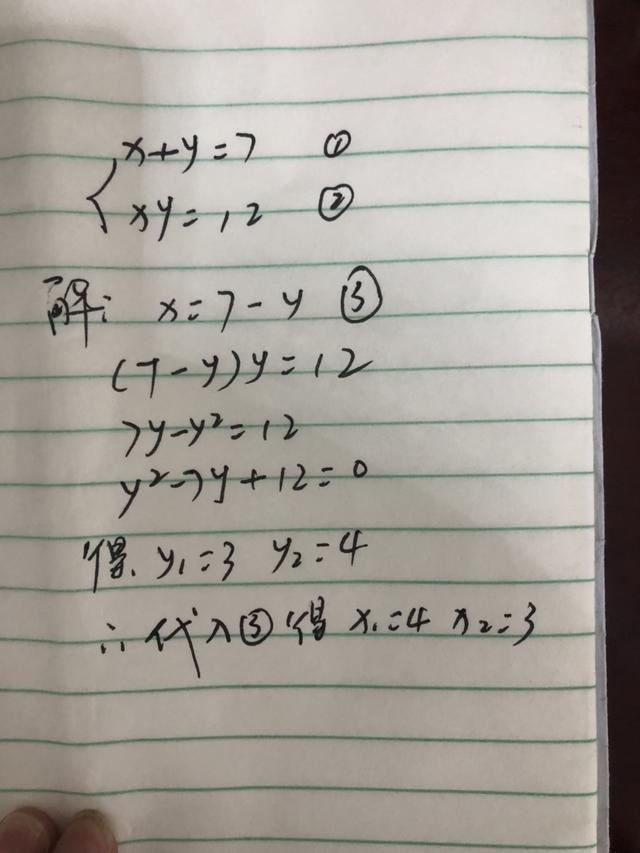 x+y=7 ①
xy=12 ②
解: x=7-y ③
(7-y)y=12
7y-y²=12
y²-7y+12=0
得. y₁=3 y₂=4
∴代入③得 x₁=4 x₂=3